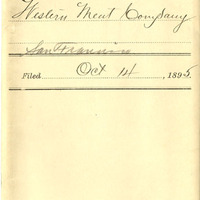 Western Meat Company
San Francisco
Filed Oct 14, 1895